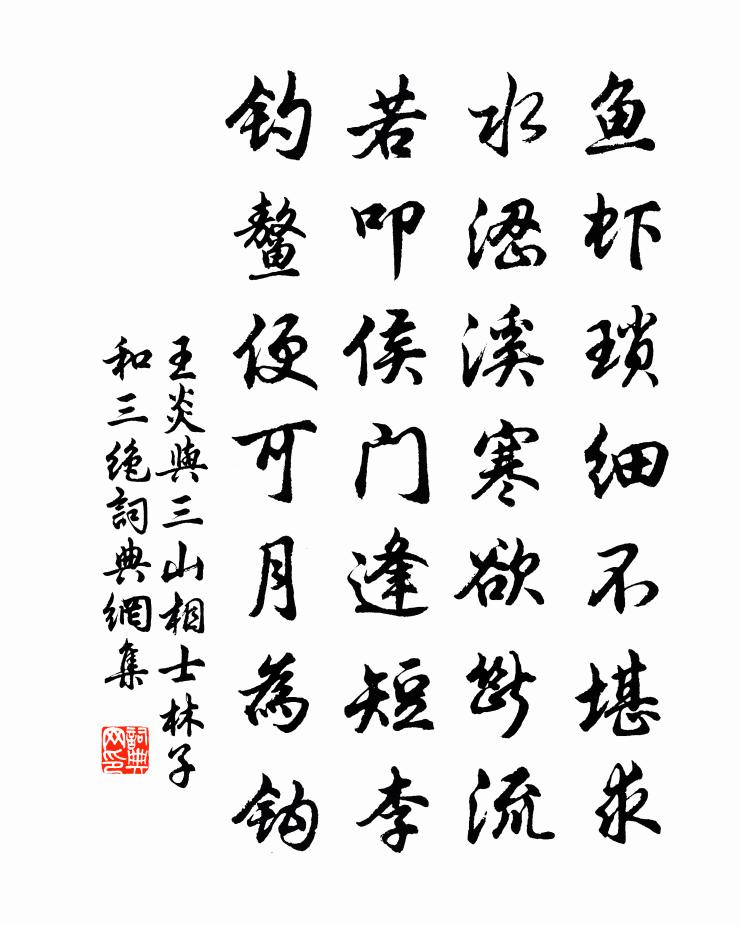 鱼虾琐细不堪求
水涩溪寒欲断流
若叩侯门逢短李
钓鳌便可月为钩
王炎與三山相士林子
和三绝詞典網集
詞典网印